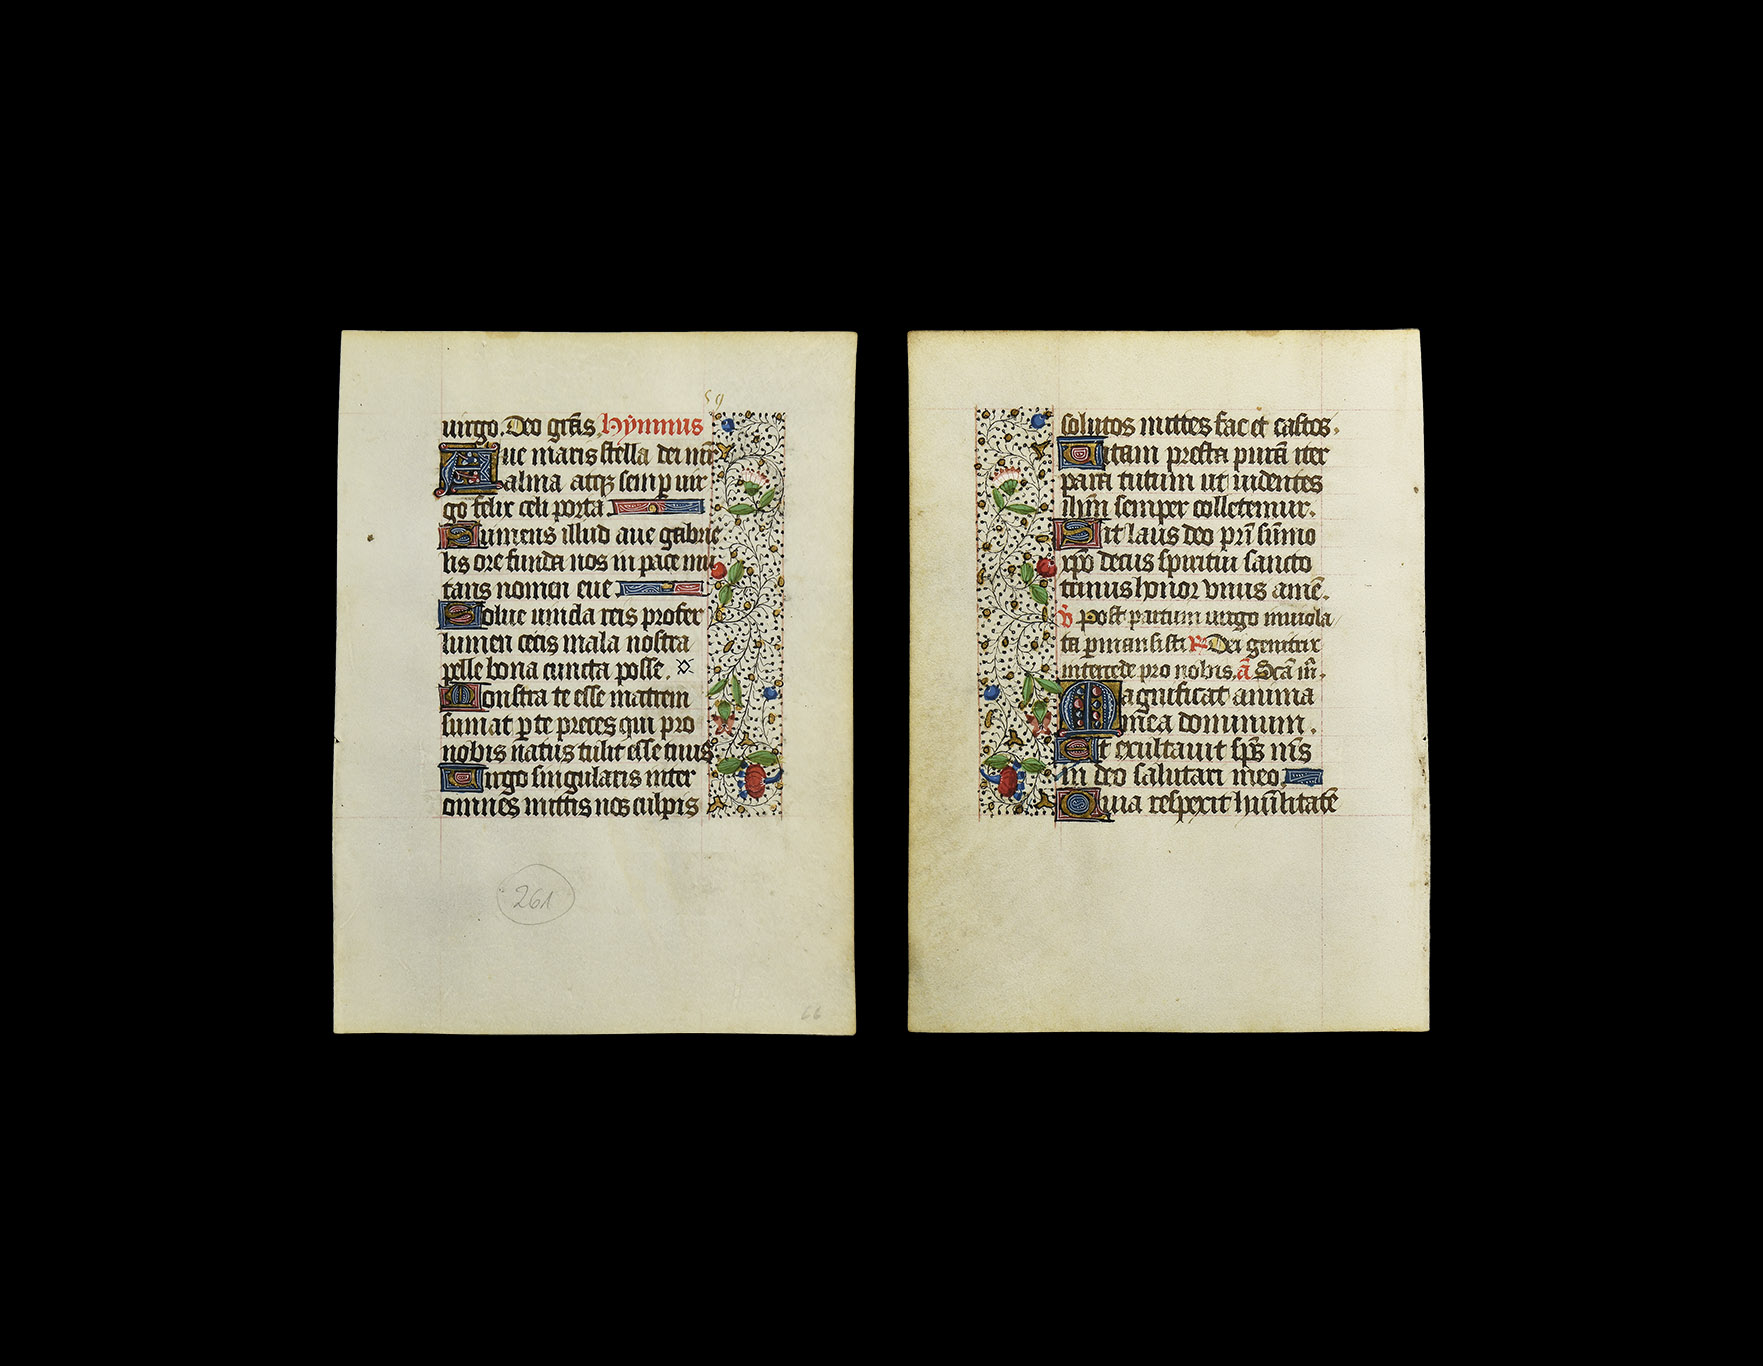 59
uirgo. Deo grãs. Hỹmnus
Aue maris stella dei mr̃
alma atqꝫ semꝑ uir
go felix celi porta.
Sumens illud aue gabrie
lis ore funda nos in pace mu
tans nomen eue
Solue uincla reis profer
lumen cecis mala nostra
pelle bona cuncta posse.
Monstra te esse matrem
sumat ꝑ te preces qui pro
nobis natus tulit esse tuus
Uirgo singularis inter
omnes mittis nos culpis
261
66
solutos mittes fac et castos.
Uitam presta purã iter
para tutum ut uidentes
ihm̃ semper colletemur.
Sit laus deo pr̃i sũmo
xp̃o decus spiritui sancto
trinus honor vnus amẽ.
℣ post partum uirgo inuiola
ta ꝑmansisti ℟ Dei genitrix
intercede pro nobis. ã Scã m̃.
Magnificat anima
mea dominum.
Et exultauit sp̃s mẽs
in deo salutari meo
Quia respexit humilitatẽ